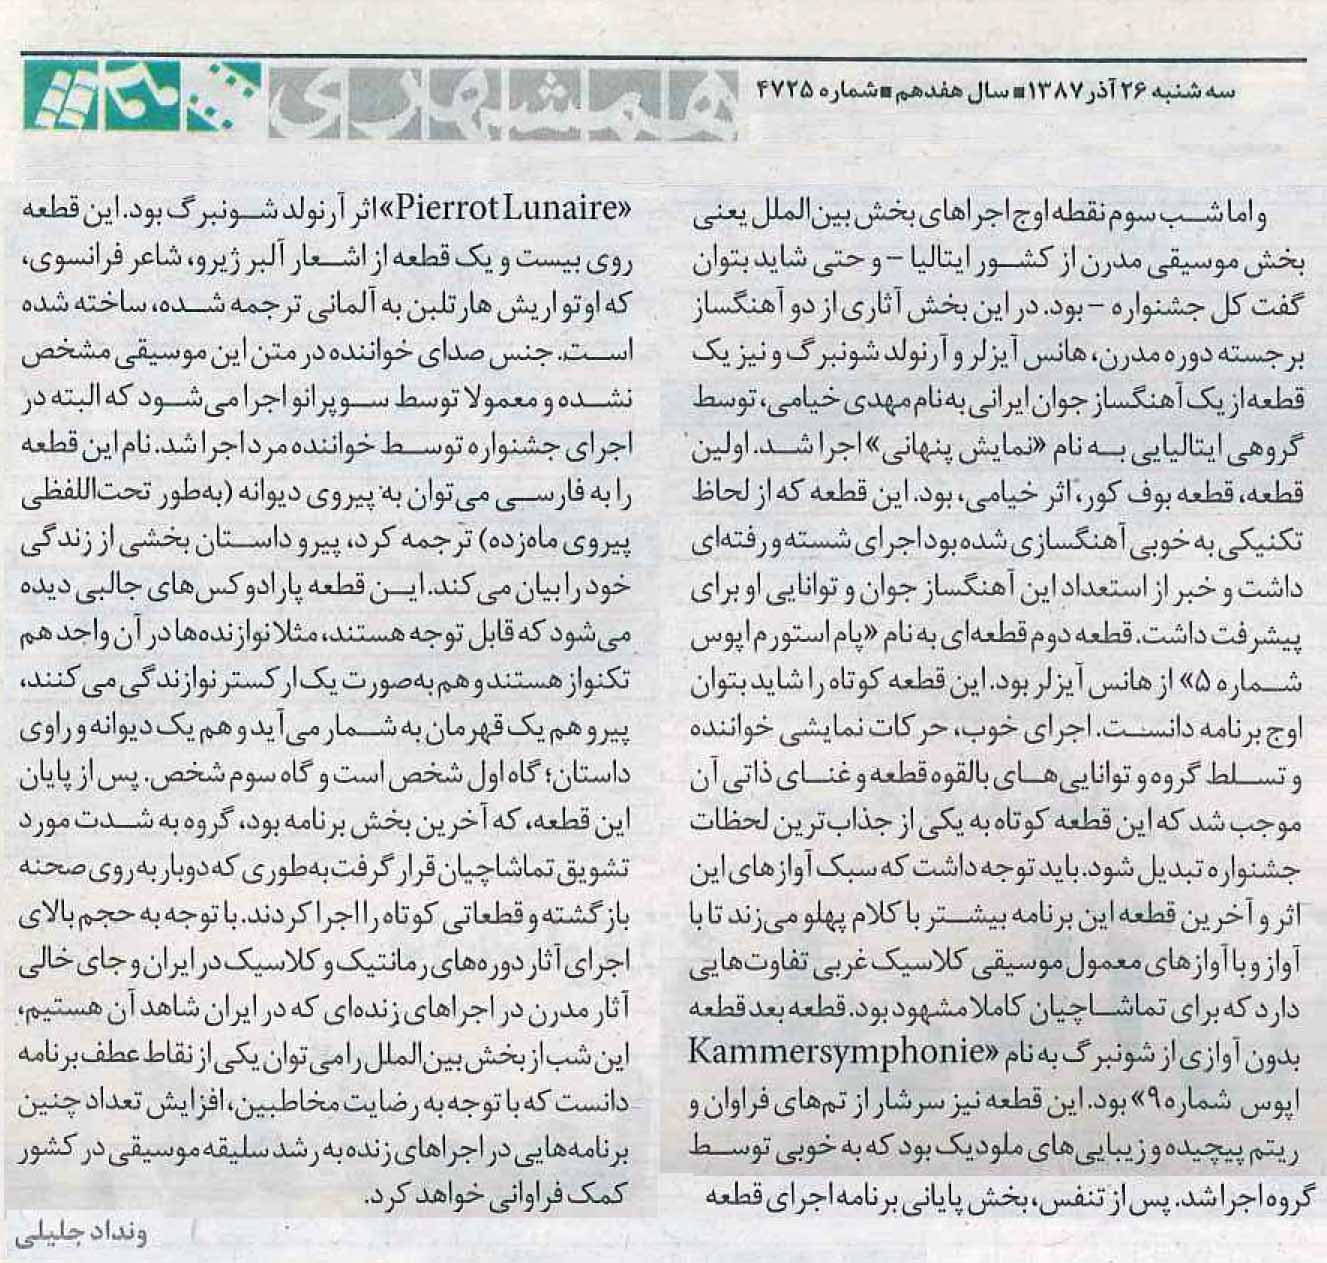 سه شنبه ۲۶ آذر ۱۳۸۷ ■ سال هفدهم ■ شماره ۴۷۲۵
همشهری
و اما شب سوم نقطه اوج اجراهای بخش بین‌الملل یعنی
بخش موسیقی مدرن از کشور ایتالیا – و حتی شاید بتوان
گفت کل جشنواره – بود. در این بخش آثاری از دو آهنگساز
برجسته دوره مدرن، هانس آیزلر و آرنولد شونبرگ و نیز یک
قطعه از یک آهنگساز جوان ایرانی به‌نام مهدی خیامی، توسط
گروهی ایتالیایی به نام «نمایش پنهانی» اجرا شد. اولین
قطعه، قطعه بوف کور، اثر خیامی، بود. این قطعه که از لحاظ
تکنیکی به خوبی آهنگسازی شده بود اجرای شسته و رفته‌ای
داشت و خبر از استعداد این آهنگساز جوان و توانایی او برای
پیشرفت داشت. قطعه دوم قطعه‌ای به نام «پام استورم اپوس
شماره ۵» از هانس آیزلر بود. این قطعه کوتاه را شاید بتوان
اوج برنامه دانست. اجرای خوب، حرکات نمایشی خواننده
و تسلط گروه و توانایی‌های بالقوه قطعه و غنای ذاتی آن
موجب شد که این قطعه کوتاه به یکی از جذاب‌ترین لحظات
جشنواره تبدیل شود. باید توجه داشت که سبک آوازهای این
اثر و آخرین قطعه این برنامه بیشتر با کلام پهلو می‌زند تا با
آواز و با آوازهای معمول موسیقی کلاسیک غربی تفاوت‌هایی
دارد که برای تماشاچیان کاملا مشهود بود. قطعه بعد قطعه
بدون آوازی از شونبرگ به نام «Kammersymphonie
اپوس شماره ۹» بود. این قطعه نیز سرشار از تم‌های فراوان و
ریتم پیچیده و زیبایی‌های ملودیک بود که به خوبی توسط
گروه اجرا شد. پس از تنفس، بخش پایانی برنامه اجرای قطعه
«Pierrot Lunaire» اثر آرنولد شونبرگ بود. این قطعه
روی بیست و یک قطعه از اشعار آلبر ژیرو، شاعر فرانسوی،
که اوتو اریش هارتلبن به آلمانی ترجمه شده، ساخته شده
است. جنس صدای خواننده در متن این موسیقی مشخص
نشده و معمولا توسط سوپرانو اجرا می‌شود که البته در
اجرای جشنواره توسط خواننده مرد اجرا شد. نام این قطعه
را به فارسی می‌توان به پیروی دیوانه (به‌طور تحت‌اللفظی
پیروی ماه‌زده) ترجمه کرد، پیرو داستان بخشی از زندگی
خود را بیان می‌کند. این قطعه پارادوکس‌های جالبی دیده
می‌شود که قابل توجه هستند، مثلا نوازنده‌ها در آن واحد هم
تکنواز هستند و هم به‌صورت یک ارکستر نوازندگی می‌کنند،
پیرو هم یک قهرمان به شمار می‌آید و هم یک دیوانه و راوی
داستان؛ گاه اول شخص است و گاه سوم شخص. پس از پایان
این قطعه، که آخرین بخش برنامه بود، گروه به شدت مورد
تشویق تماشاچیان قرار گرفت به‌طوری که دوبار به روی صحنه
بازگشته و قطعاتی کوتاه را اجرا کردند. با توجه به حجم بالای
اجرای آثار دوره‌های رمانتیک و کلاسیک در ایران و جای خالی
آثار مدرن در اجراهای زنده‌ای که در ایران شاهد آن هستیم،
این شب از بخش بین‌الملل را می‌توان یکی از نقاط عطف برنامه
دانست که با توجه به رضایت مخاطبین، افزایش تعداد چنین
برنامه‌هایی در اجراهای زنده به رشد سلیقه موسیقی در کشور
کمک فراوانی خواهد کرد.
ونداد جلیلی